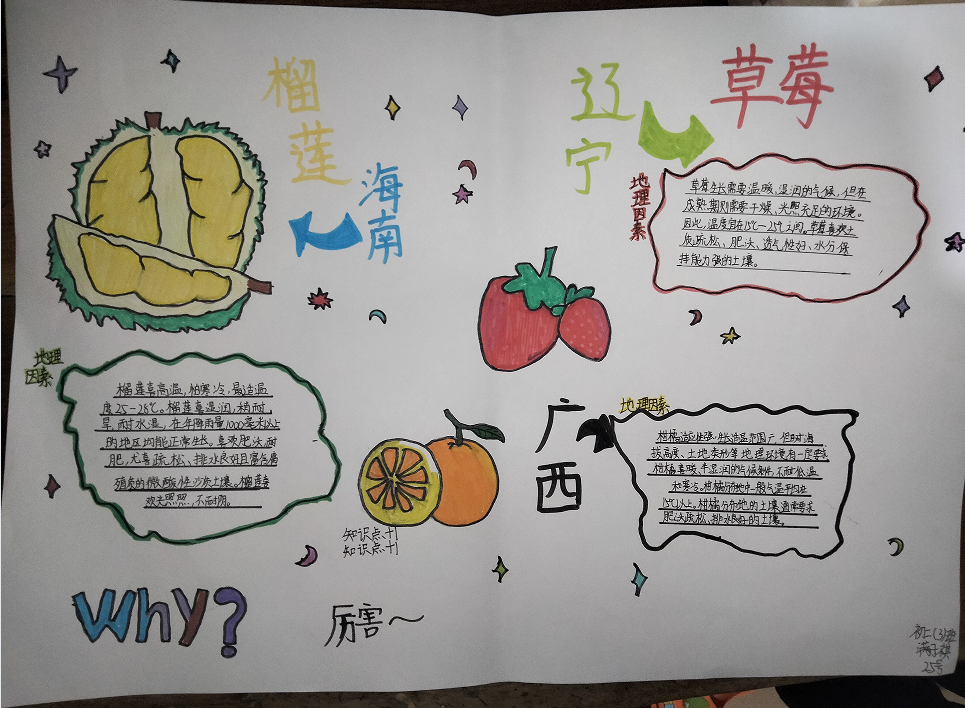 榴莲
海南
辽宁
草莓
地理因素
草莓生长需要温暖、湿润的气候，但在
成熟期则需要干燥、光照充足的环境。
因此，温度宜在15℃-25℃之间。草莓喜欢土
质疏松、肥沃、透气性好、水分保
持能力强的土壤。
地理
因素
榴莲喜高温，怕寒冷，最适温
度25-28℃。榴莲喜湿润，稍耐
旱，耐水湿，在年降雨量1000毫米以上
的地区均能正常生长。喜浓肥沃耐
肥，尤喜疏松、排水良好且富含腐
殖质的微酸性沙质土壤。榴莲喜
欢光照，不耐阴。
广西
地理因素
柑橘适应性强，生长适温范围广，但对海
拔高度、土地条形等地理环境有一定要求
柑橘喜暖、半湿润的气候条件，不耐低温
和寒冷。柑橘分布地中一般气温平均在
15℃以上。柑橘分布地的土壤通常要求
肥沃疏松、排水良好的土壤。
知识点+1
知识点+1
Why?
厉害～
初二(3)班
满子祺
25号